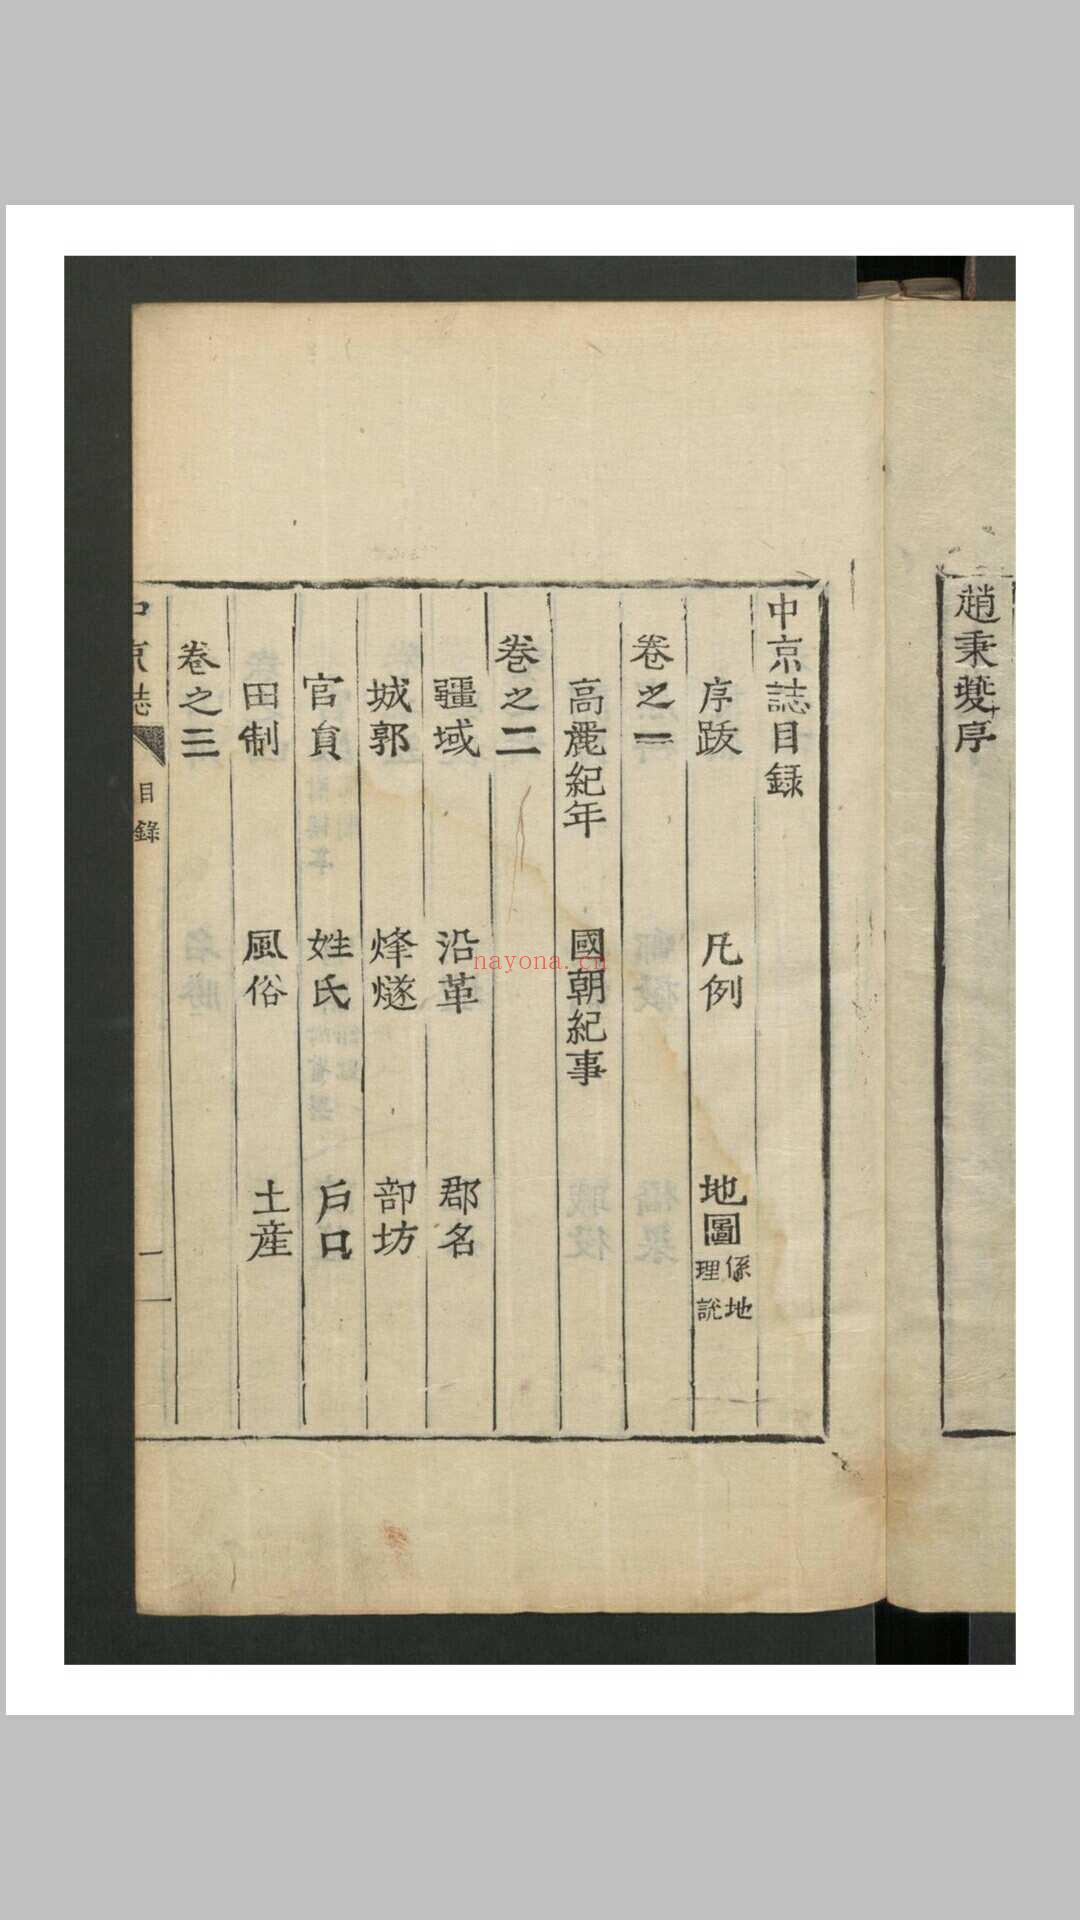 趙秉夔序
中京誌目録
序跋 凡例 地圖係地理説
卷之一
高麗紀年 國朝紀事
卷之二
疆域 沿革 郡名
城郭 烽燧 部坊
官員 姓氏 戶口
田制 風俗 土産
卷之三
中京誌 目錄 一
nayona.cn